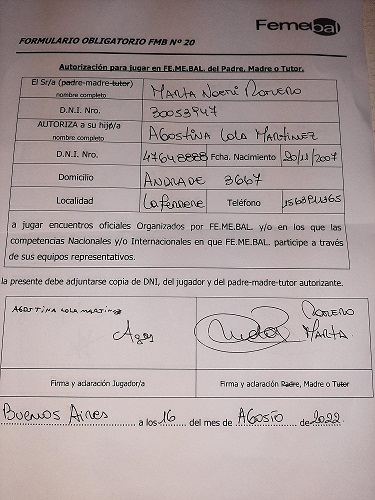 Femebal
FORMULARIO OBLIGATORIO FMB Nº 20
Autorización para jugar en FE.ME.BAL. del Padre, Madre o Tutor.
El Sr/a (padre-madre-tutor) MARTA NOEMI ROMERO
nombre completo
D.N.I. Nro. 30053947
AUTORIZA a su hijo/a AGOSTINA LOLA MARTINEZ
nombre completo
D.N.I. Nro. Fcha. Nacimiento 20/11/2007
Domicilio ANDRADE 3667
Localidad Laferrere Teléfono
a jugar encuentros oficiales Organizados por FE.ME.BAL. y/o en los que las
competencias Nacionales y/o Internacionales en que FE.ME.BAL. participe a través
de sus equipos representativos.
la presente debe adjuntarse copia de DNI, del jugador y del padre-madre-tutor autorizante.
AGOSTINA LOLA MARTINEZ ROMERO
Agos MARTA.
Firma y aclaración Jugador/a Firma y aclaración Padre, Madre o Tutor
BUENOS AIRES a los 16 del mes de AGOSTO de 2022